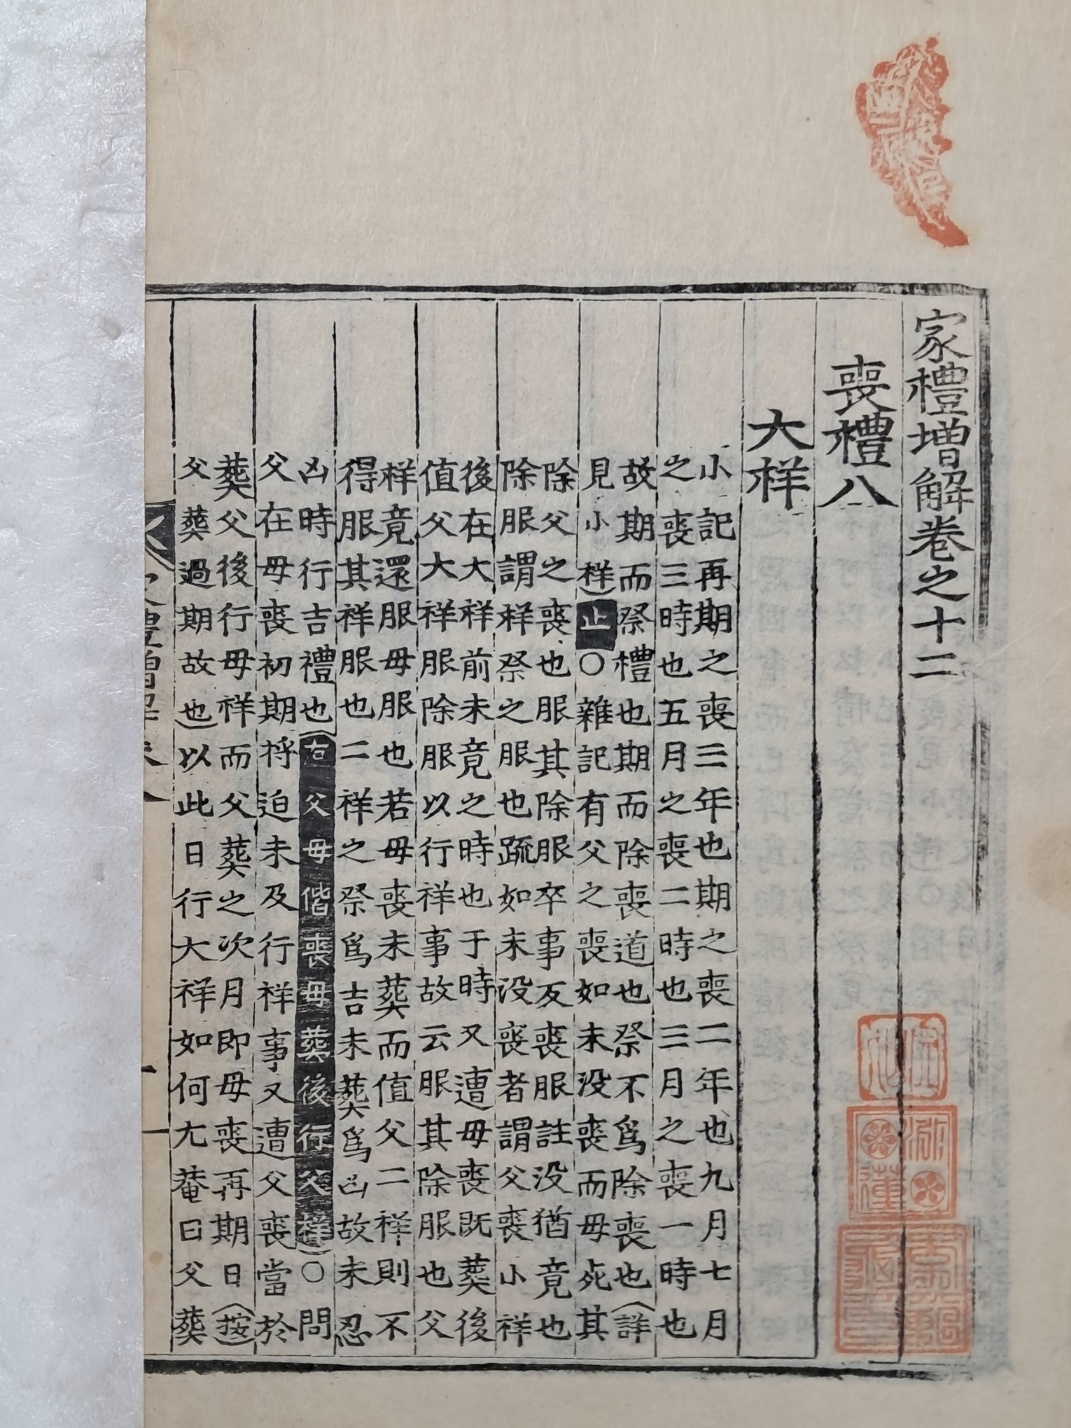 家禮增解卷之十二
喪禮八
大祥
小記再期之喪三年也期之喪二年也九月七月
之喪三時也五月之喪二時也三月之喪一時也
故期而祭禮也期而除喪道也祭不爲除喪也(詳
見小祥)止○雜記有父之喪如未没喪而母死其
除父之喪也服其除服卒事反喪服註没猶竟也
除服謂祥祭之服也疏如未没喪者謂父喪小祥
後在大祥前未竟之時也于時又遭母喪既葬後
值父大祥服除服以行祥事故云服其除服也父
祥竟還服母服也若母喪未葬而值父二祥則不
得服其祥服也二祥之祭爲吉未葬爲凶故未忍
凶時行吉禮也(右父母偕喪母葬後行父祥)○問
父在母喪初期將迫未及行祥事又遭父喪當於
葬父後行母祥而父葬之次月即母喪再期日(按
父葬過期故也)以此日行大祥如何尤菴曰父葬